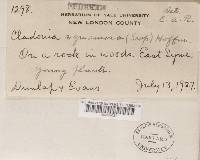 1298.
Det.
HERBARIUM OF YALE UNIVERSITY
NEW LONDON COUNTY
Cladonia squamosa (Scop.) Hoffm.
On a rock in woods. East Lyme.
Young plants.
Dunlap & Evans July 13, 1927.
HARVARD